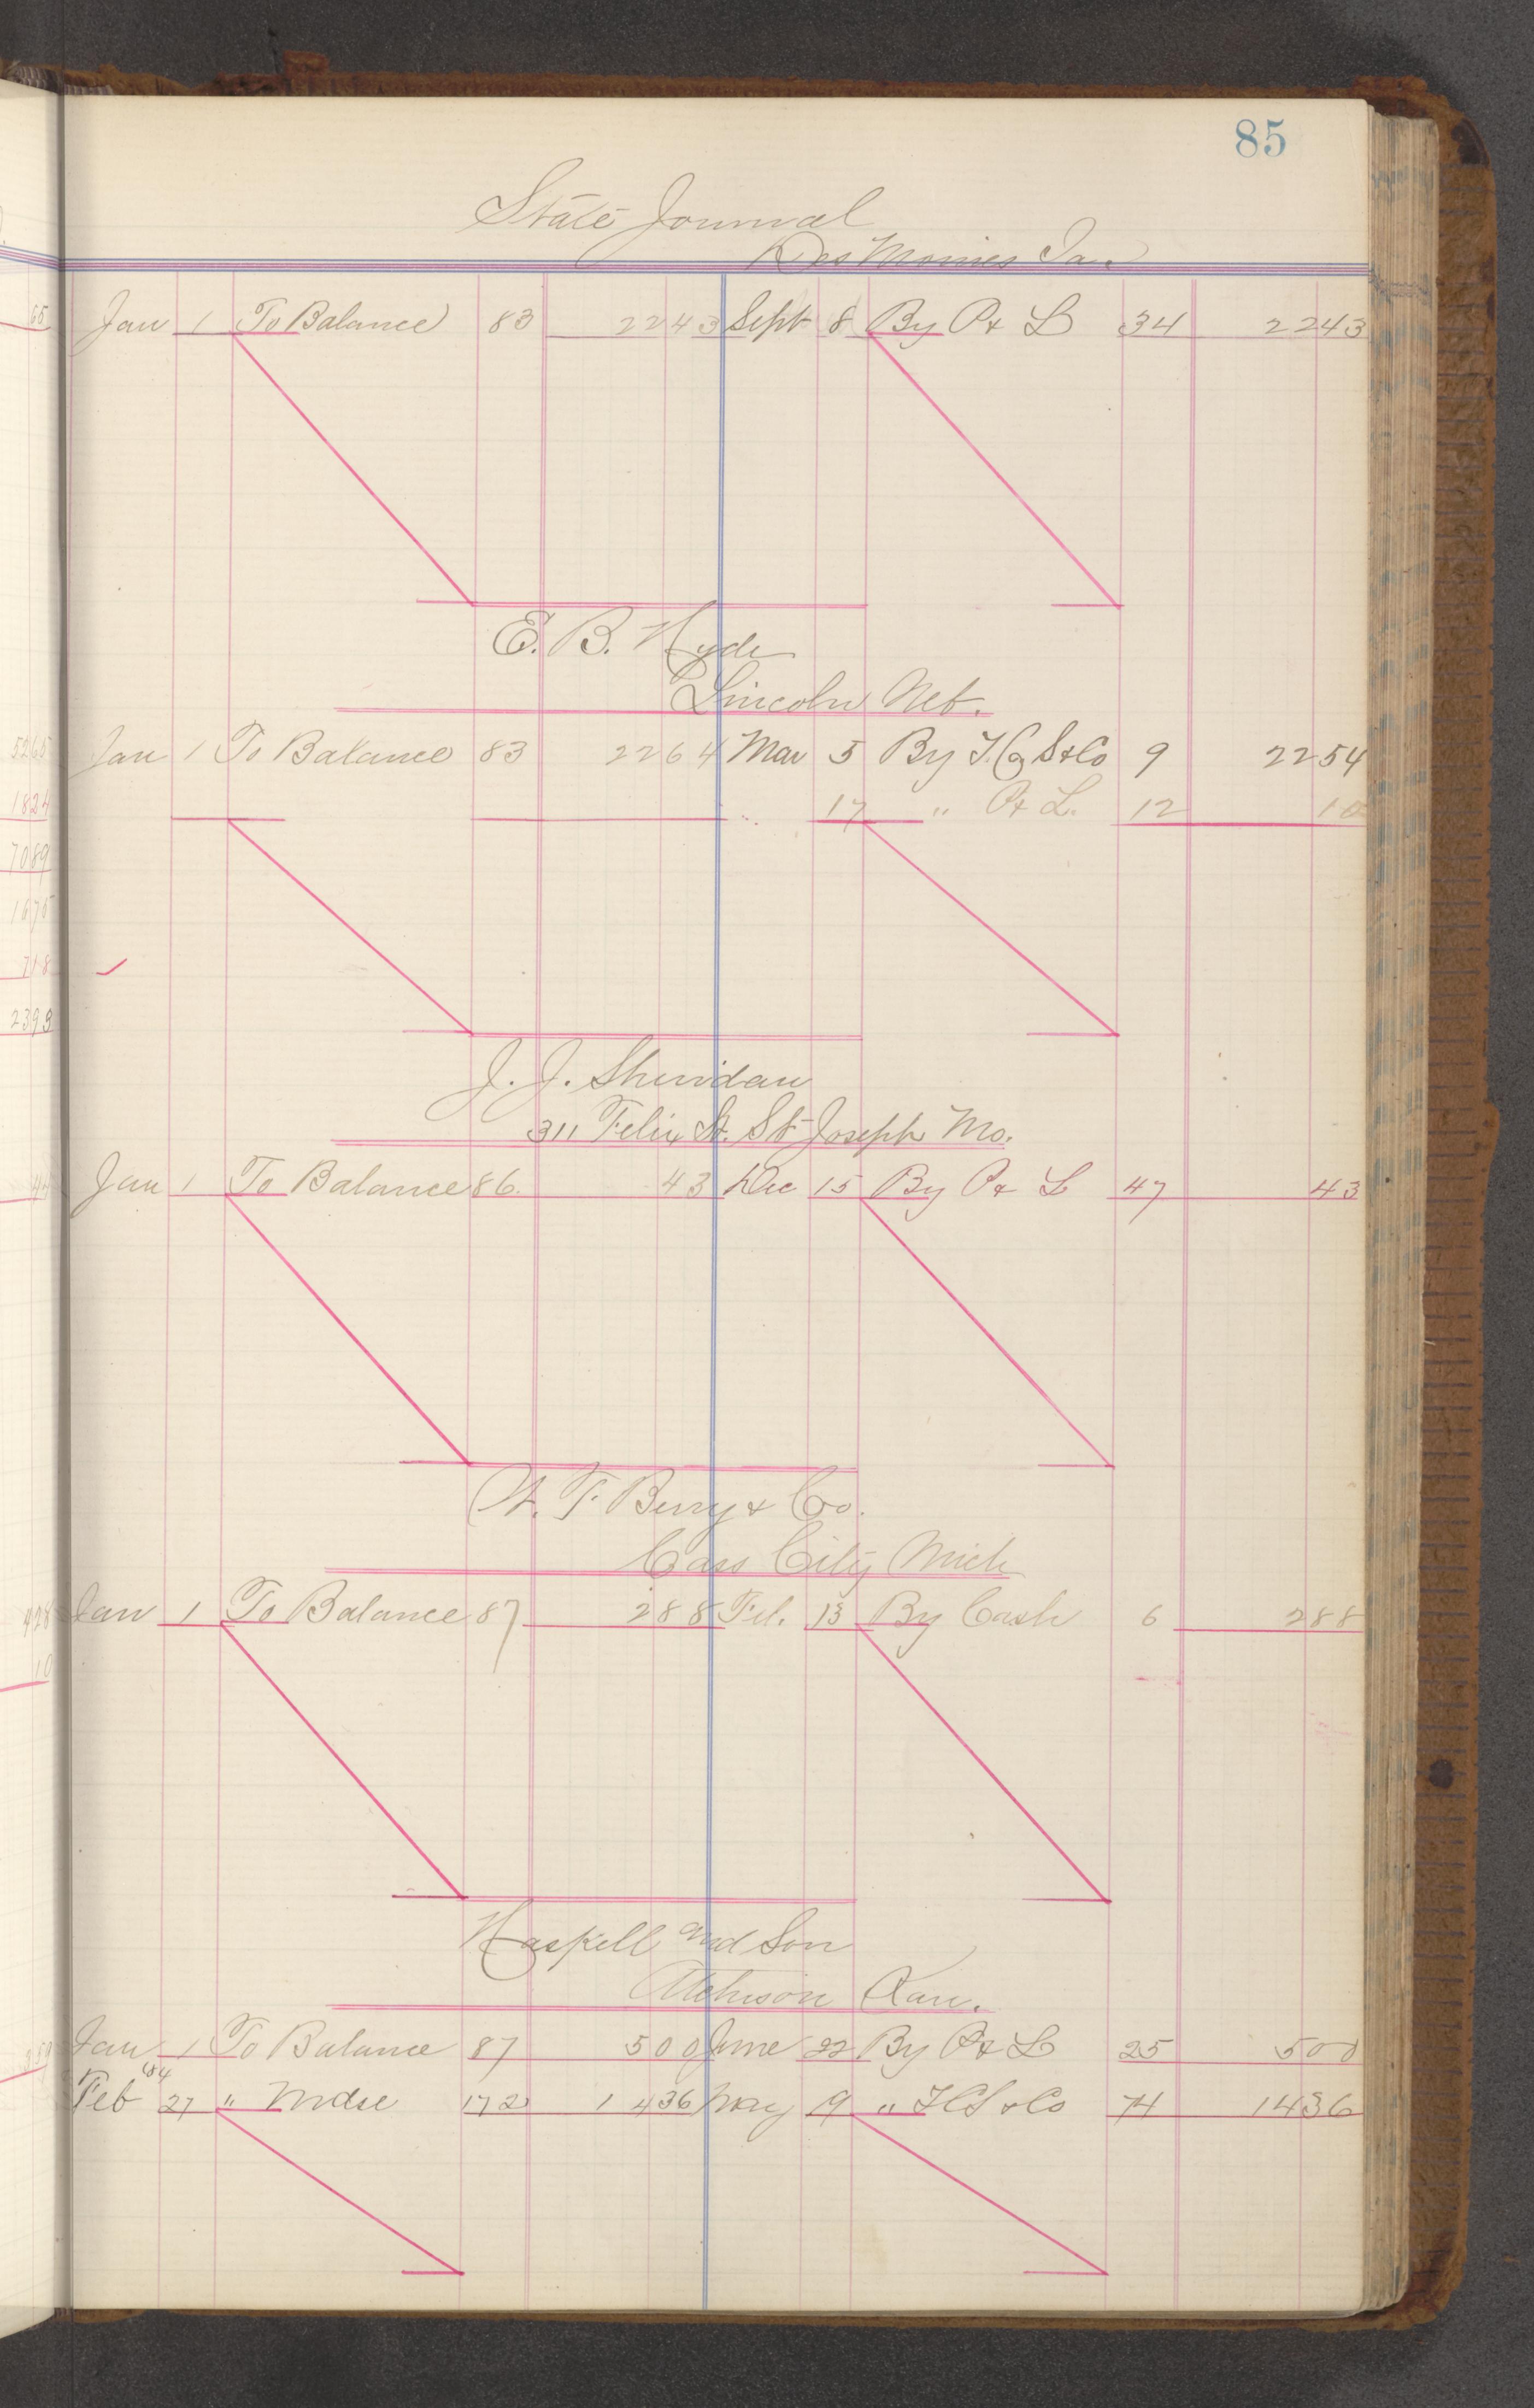 85
State Journal
Des Moines Ia.
Jan 1 To Balance 83 2243 Sept 8 By P & L 34 2243
E. B. Hyde
Lincoln Neb.
Jan 1 To Balance 83 2264 Mar 5 By T. C. S & Co 9 2254
17 " P & L. 12 10
J. J. Sheridan
311 Felix St. St Joseph Mo.
Jan 1 To Balance 86 43 Dec 15 By P & L 47 43
T. Berry & Co.
Cass City Mich
Jan 1 To Balance 87 288 Feb. 13 By Cash 6 288
Haskell and Son
Atchison Kan.
Jan 1 To Balance 87 500 June 22 By P & L 25 500
'84
Feb 27 " Mdse 172 1436 May 19 " T C S & Co 74 1436
65
5265
1824
7089
1675
718
2399
428
10